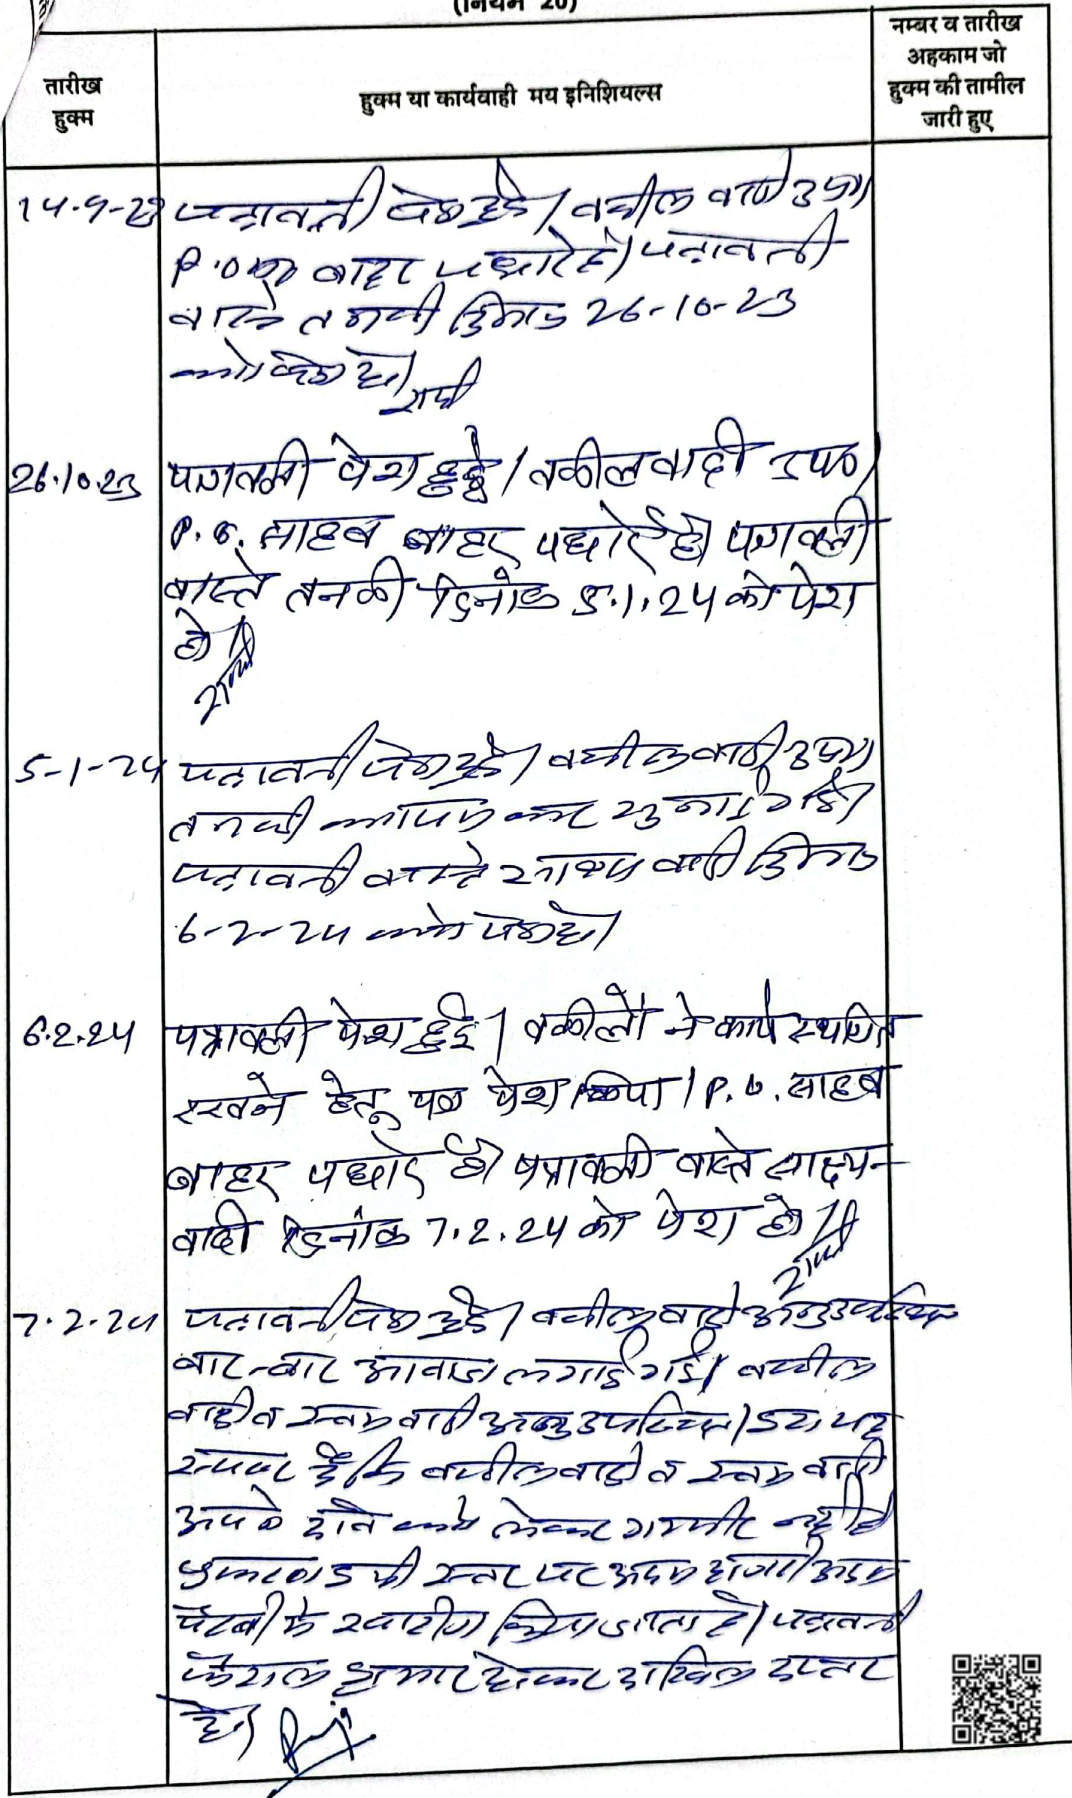 (नियम 20)
तारीख
हुक्म
हुक्म या कार्यवाही मय इनिशियल्स
नम्बर व तारीख
अहकाम जो
हुक्म की तामील
जारी हुए
14-9-23 पत्रावली पेश हुई। वकील वादी उप०।
P.O. बाहर पधारे है। पत्रावली
वास्ते तनकी दिनांक 26-10-23
को पेश हो।
26.10.23 पत्रावली पेश हुई। वकील वादी उप०।
P.O. साहब बाहर पधारे है। पत्रावली
वास्ते तनकी दिनांक 5.1.24 को पेश
हो।
5-1-24 पत्रावली पेश हुई। वकील वादी उप०।
तनकी कायम कर सुनाई गई।
पत्रावली वास्ते साक्ष्य वादी दिनांक
6-2-24 को पेश हो।
6.2.24 पत्रावली पेश हुई। वकीलों ने कार्य स्थगित
रखने हेतू पत्र पेश किया। P.O. साहब
बाहर पधारे है। पत्रावली वास्ते साक्ष्य-
वादी दिनांक 7.2.24 को पेश हो।
7.2.24 पत्रावली पेश हुई। वकील वादी अनुउपस्थित
बार-बार आवाज लगाई गई। वकील
वादी व स्वयं वादी अनुउपस्थित। इससे यह
स्पष्ट है कि वकील वादी व स्वयं वादी
अपने दावे को लेकर गम्भीर नही है
प्रकरण इसी स्तर पर अदम हाजरी अदम
पैरवी मे खारीज किया जाता है। पत्रावली
फैसल शुमार होकर दाखिल दफ्तर
हो।